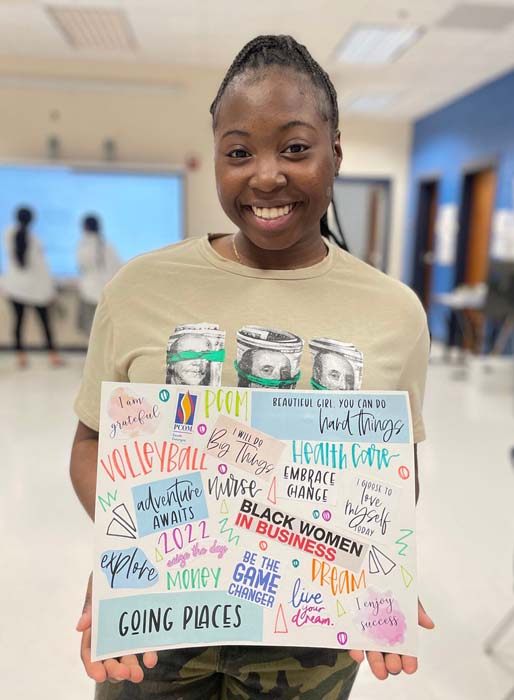 I am
grateful
PCOM
South Georgia
PCOM
BEAUTIFUL GIRL, YOU CAN DO
hard things
I WILL DO
Big THINGS
VOLLEYBALL
HEALTH CARE
adventure
AWAITS
nurse
EMBRACE
CHANGE
I CHOOSE TO
love
myself
TODAY
BLACK WOMEN
IN BUSINESS
2022
seize the day
explore
MONEY
BE THE
GAME
CHANGER
DREAM
live
your
dream.
I enjoy
success
GOING PLACES